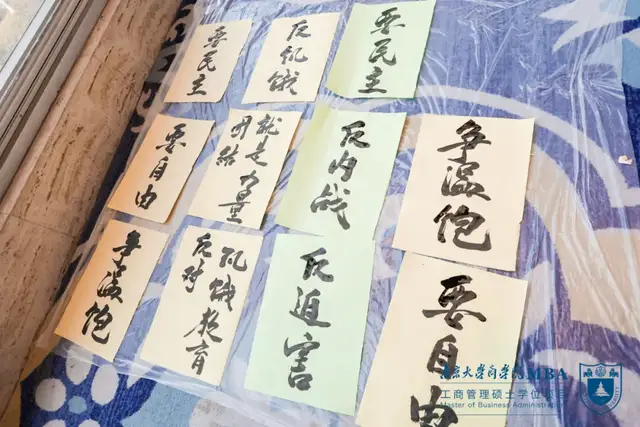 要民主
反饥饿
要民主
要自由
就是力量
团结
反内战
争温饱
争温饱
反对
饥饿教育
反迫害
要自由
南京大学商学院MBA
工商管理硕士学位项目
Master of Business Administration